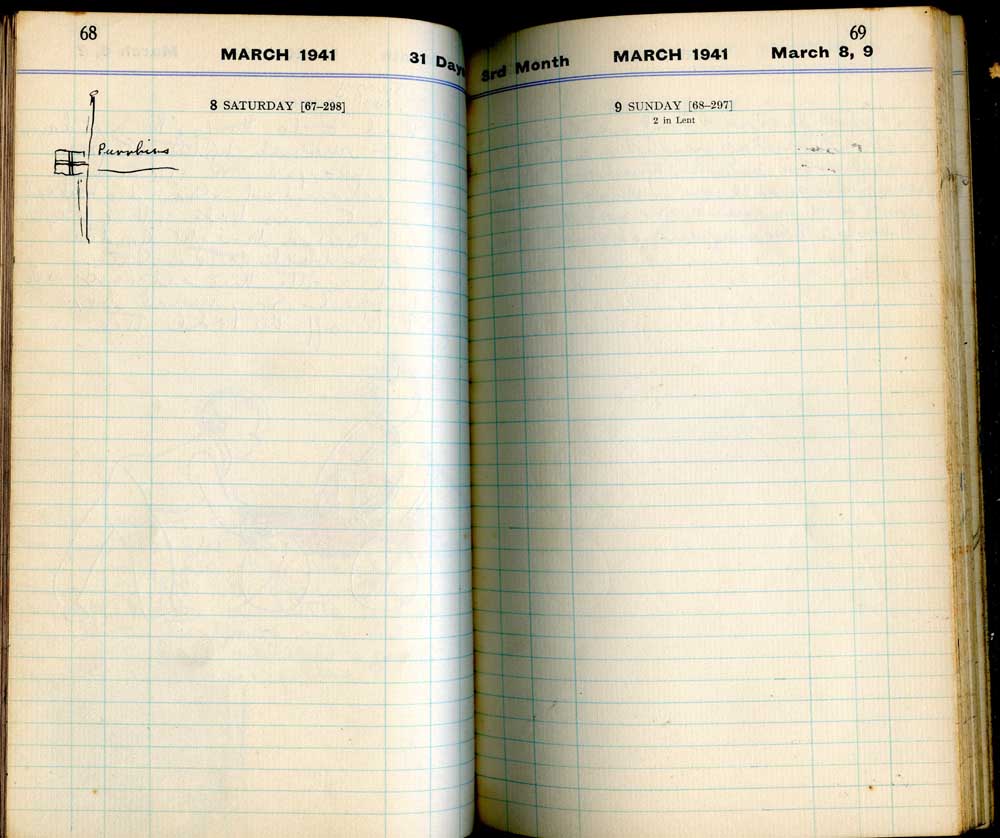 68
MARCH 1941
31 Days
8 SATURDAY [67–298]
69
3rd Month
MARCH 1941
March 8, 9
9 SUNDAY [68–297]
2 in Lent